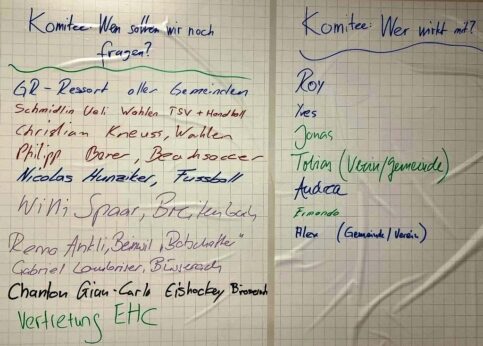 Komitee: Wen sollen wir noch
fragen?
GR-Ressort aller Gemeinden
Schmidlin Ueli Wahlen TSV + Handball
Christian Kneuss, Wahlen
Philipp Borer, Beachsoccer
Nicolas Hunziker, Fussball
Willi Spaar, Breitenbach
Remo Ankli, Beinwil "Botschafter"
Gabriel Büsserach
Chanton Gian-Carlo Eishockey
Vertretung EHC
Komitee: Wer wirkt mit?
Roy
Yves
Jonas
Tobias (Verein/Gemeinde)
Andrea
Alex (Gemeinde/Verein)